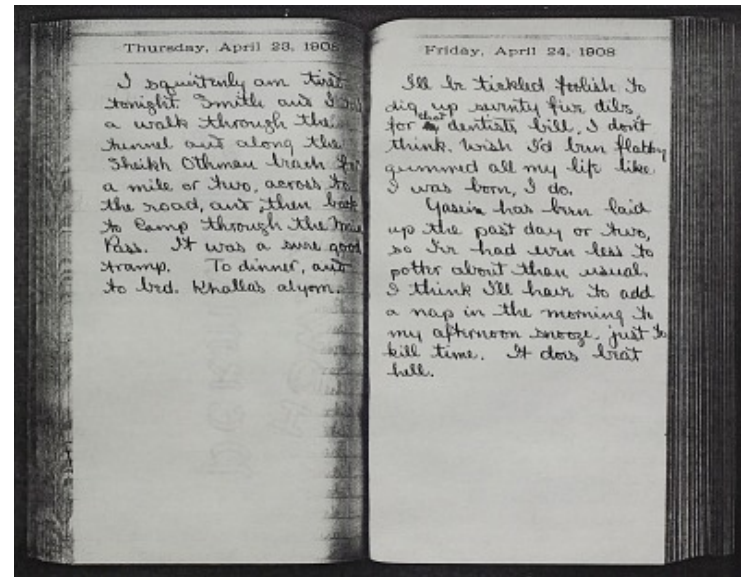 Thursday, April 23, 1908
I squitenly am tired
tonight. Smith and I
a walk through the
tunnel and along the
Sheikh Othman beach for
a mile or two, across to
the road, and then back
to Camp through the Main
Pass. It was a sure good
tramp. To dinner, and
to bed. Khallas alyom.
Friday, April 24, 1908
I'll be tickled foolish to
dig up seventy five dibs
for that dentists bill, I don't
think. Wish I'd been flabby
gummed all my life like
I was born, I do.
Yasein has been laid
up the past day or two,
so I've had even less to
potter about than usual.
I think I'll have to add
a nap in the morning to
my afternoon snooze, just to
kill time. It does beat
hell.